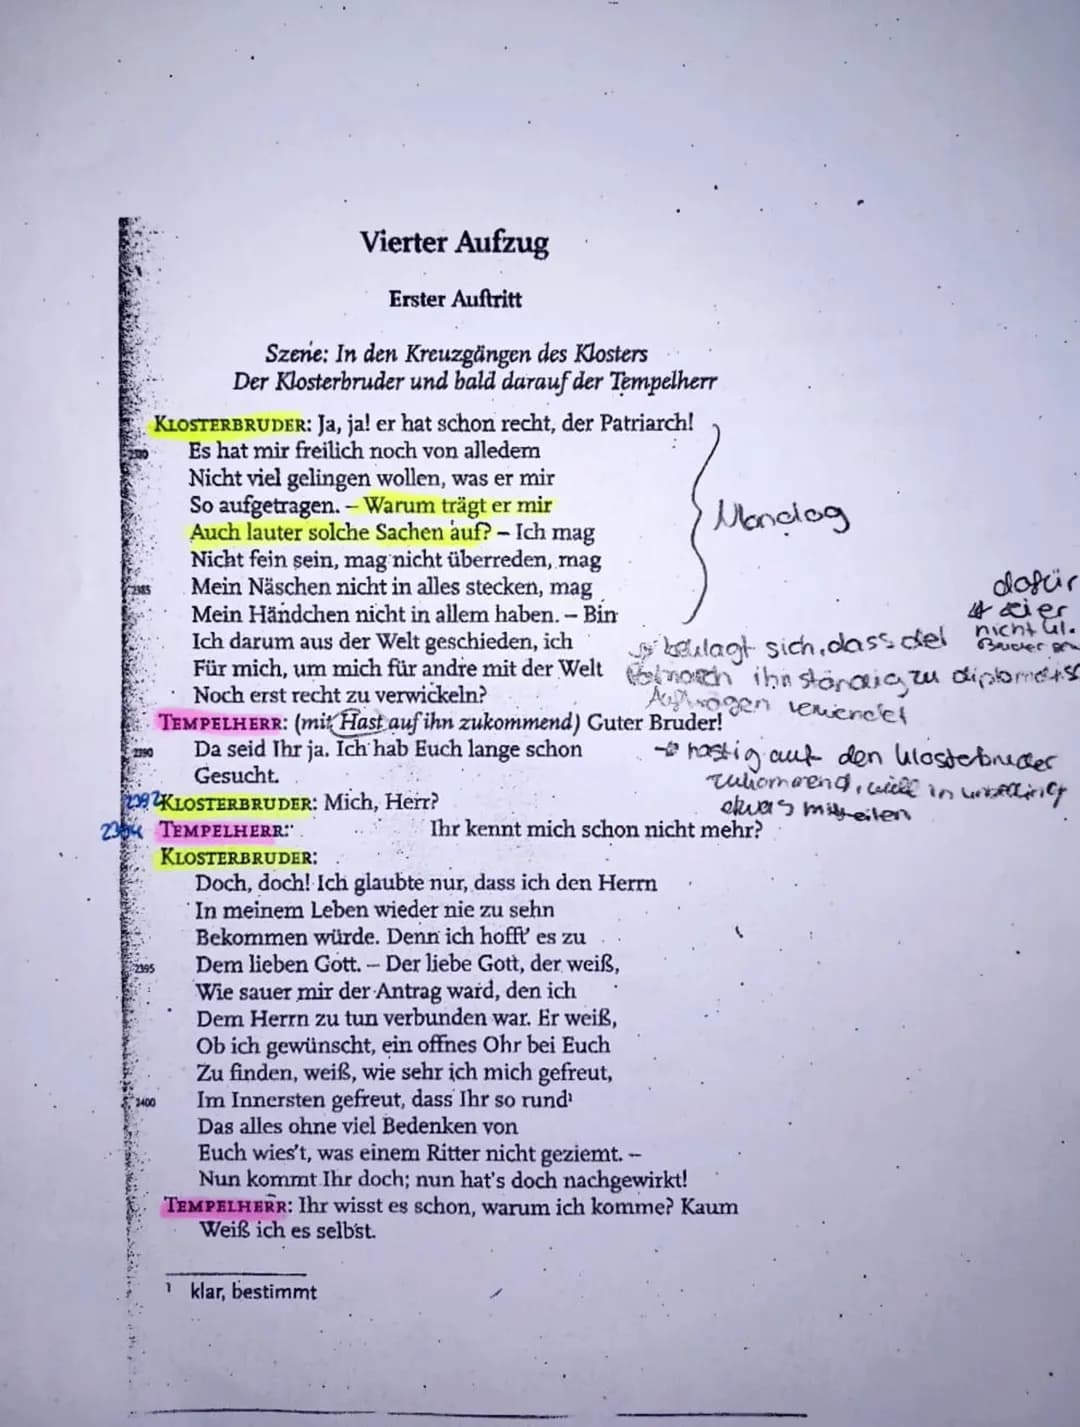 Vierter Aufzug
Erster Auftritt
Szene: In den Kreuzgängen des Klosters
Der Klosterbruder und bald darauf der Tempelherr
KLOSTERBRUDER: Ja, ja! er hat schon recht, der Patriarch!
2380 Es hat mir freilich noch von alledem
Nicht viel gelingen wollen, was er mir
So aufgetragen. – Warum trägt er mir
Auch lauter solche Sachen auf? – Ich mag
Monolog
Nicht fein sein, mag nicht überreden, mag
2385 Mein Näschen nicht in alles stecken, mag
dafür
Mein Händchen nicht in allem haben. – Bin
er
nicht
Ich darum aus der Welt geschieden, ich
beklagt sich, dass der
Für mich, um mich für andre mit der Welt
ihn ständig zu
Noch erst recht zu verwickeln?
Aufträgen verwendet
TEMPELHERR: (mit Hast auf ihn zukommend) Guter Bruder!
2390 Da seid Ihr ja. Ich hab Euch lange schon
→ hastig auf den Klosterbruder
Gesucht.
zukommend, will
2392 KLOSTERBRUDER: Mich, Herr?
etwas mitteilen
2394 TEMPELHERR: Ihr kennt mich schon nicht mehr?
KLOSTERBRUDER:
Doch, doch! Ich glaubte nur, dass ich den Herrn
In meinem Leben wieder nie zu sehn
Bekommen würde. Denn ich hofft' es zu
2395 Dem lieben Gott. – Der liebe Gott, der weiß,
Wie sauer mir der Antrag ward, den ich
Dem Herrn zu tun verbunden war. Er weiß,
Ob ich gewünscht, ein offnes Ohr bei Euch
Zu finden, weiß, wie sehr ich mich gefreut,
2400 Im Innersten gefreut, dass Ihr so rund¹
Das alles ohne viel Bedenken von
Euch wies't, was einem Ritter nicht geziemt. –
Nun kommt Ihr doch; nun hat's doch nachgewirkt!
TEMPELHERR: Ihr wisst es schon, warum ich komme? Kaum
Weiß ich es selbst.
¹ klar, bestimmt